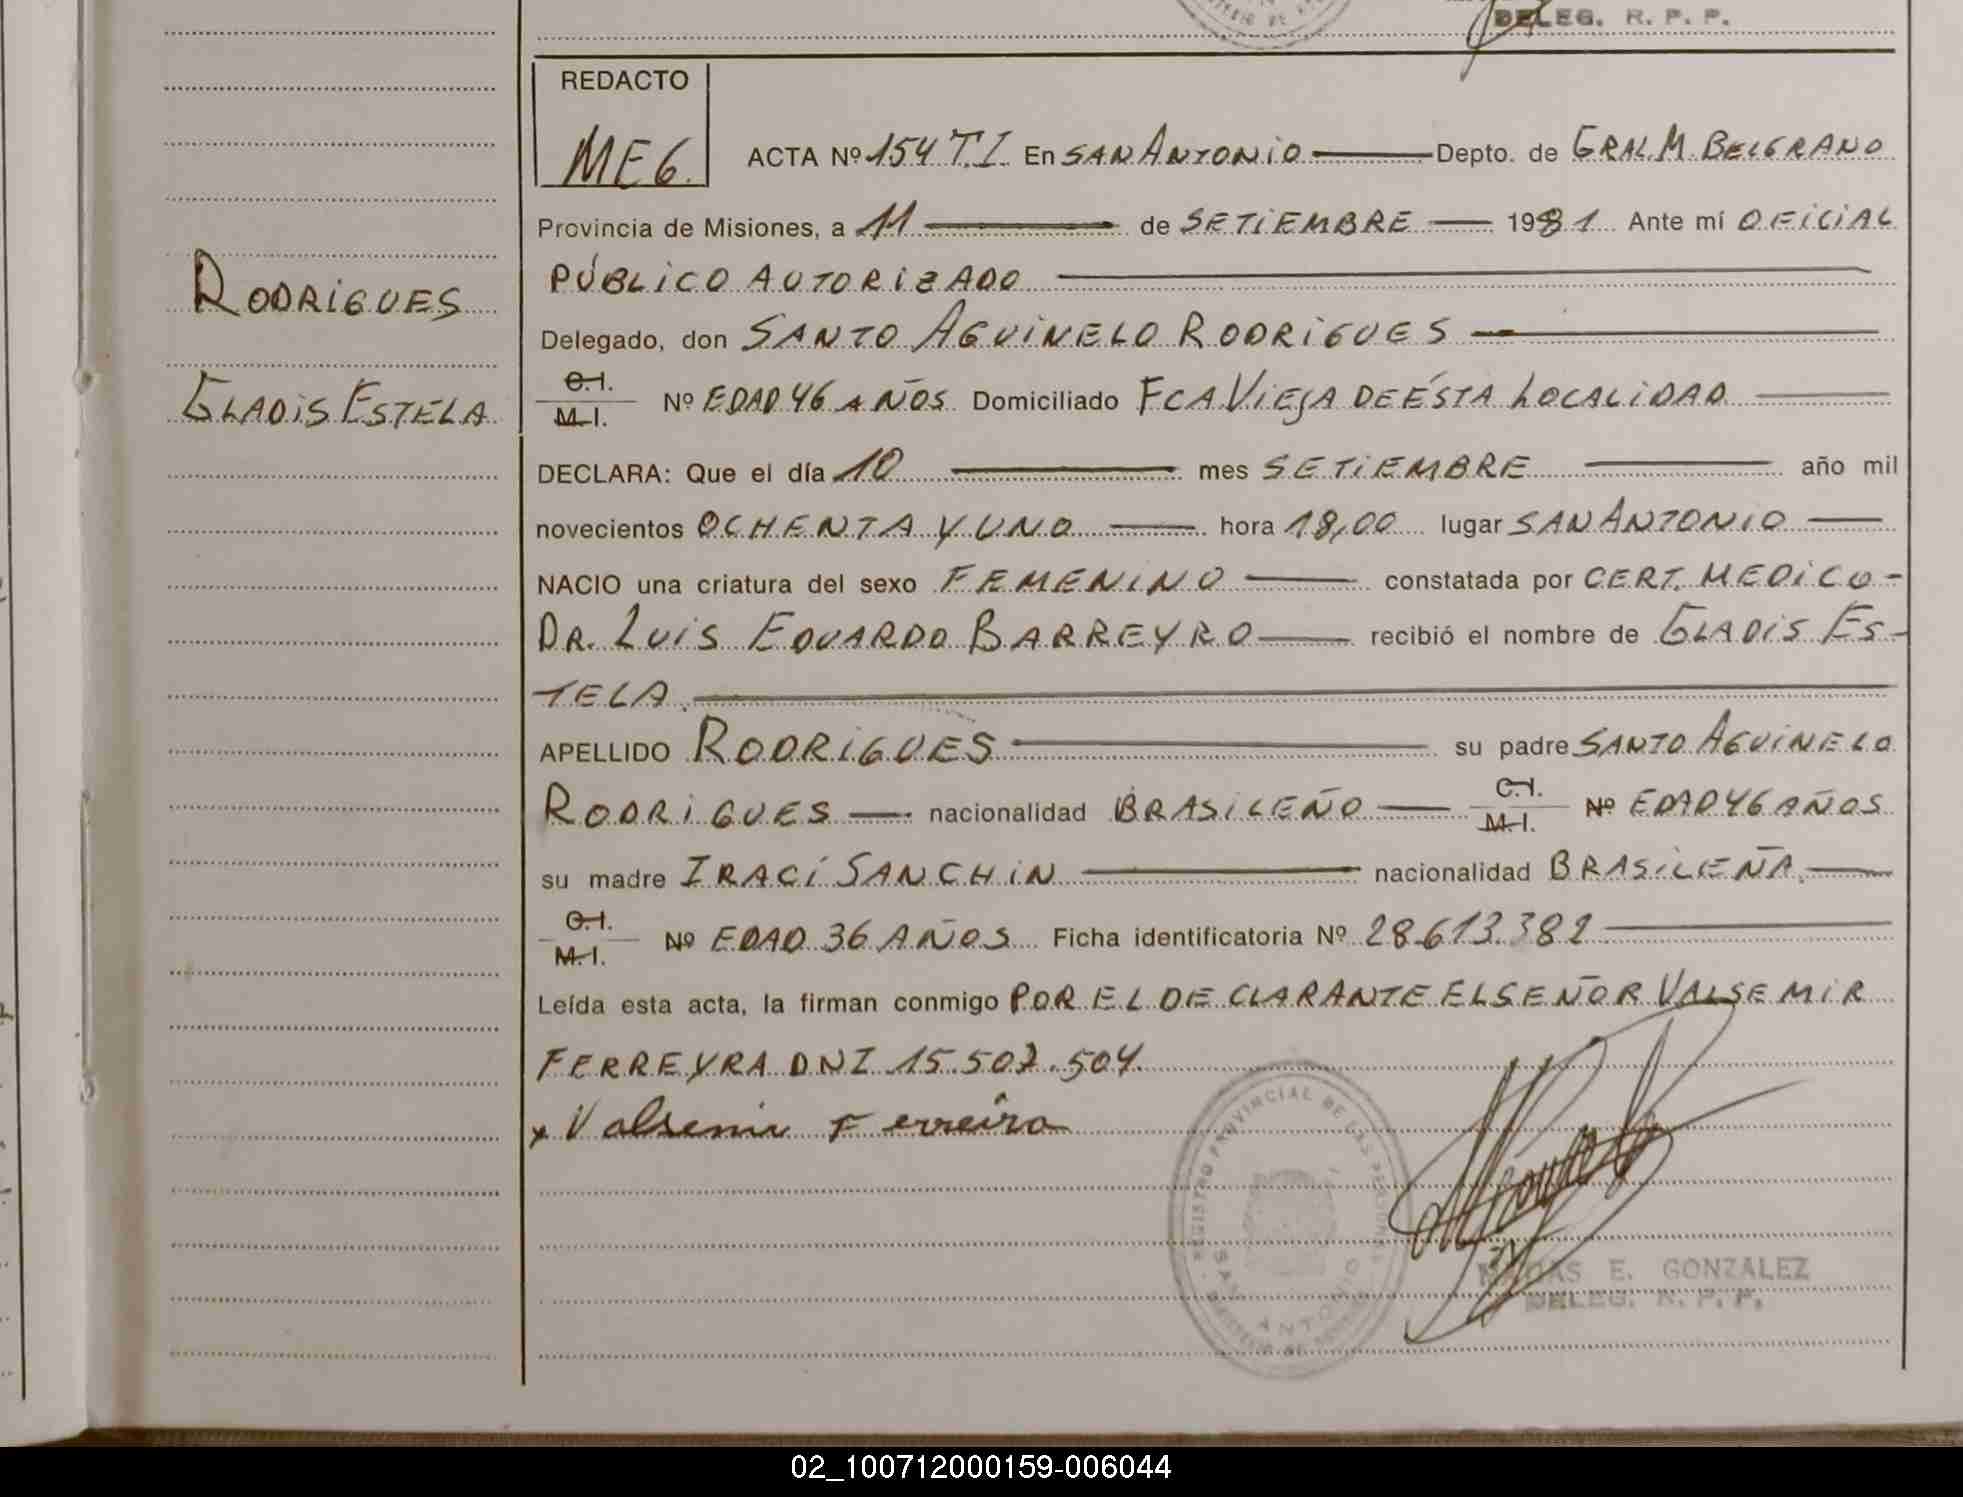 DELEG. R. P. P.
REDACTO
MEG.
ACTA Nº 154 T.I. En SAN ANTONIO Depto. de GRAL M. BELGRANO
Provincia de Misiones, a 11 de SETIEMBRE 1981. Ante mí OFICIAL
PÚBLICO AUTORIZADO
RODRIGUES
Delegado, don SANTO AGUINELO RODRIGUES
GLADIS ESTELA
C.I.
M.I. Nº EDAD 46 AÑOS Domiciliado FCA VIEJA DE ÉSTA LOCALIDAD
DECLARA: Que el día 10 mes SETIEMBRE año mil
novecientos OCHENTA Y UNO hora 18,00 lugar SAN ANTONIO
NACIO una criatura del sexo FEMENINO constatada por CERT. MEDICO-
DR. LUIS EDUARDO BARREYRO recibió el nombre de GLADIS ES-
TELA.
APELLIDO RODRIGUES su padre SANTO AGUINELO
RODRIGUES nacionalidad BRASILEÑO C.I. M.I. Nº EDAD 46 AÑOS
su madre IRACÍ SANCHIN nacionalidad BRASILEÑA.
C.I.
M.I. Nº EDAD 36 AÑOS Ficha identificatoria Nº 28.613.382
Leída esta acta, la firman conmigo POR EL DECLARANTE EL SEÑOR VALSEMIR
FERREYRA DNI 15.507.504.
x Valsemir Ferreira
REGISTRO PROVINCIAL DE LAS PERSONAS
SAN ANTONIO
E. GONZALEZ
DELEG. R. P. P.
02_100712000159-006044